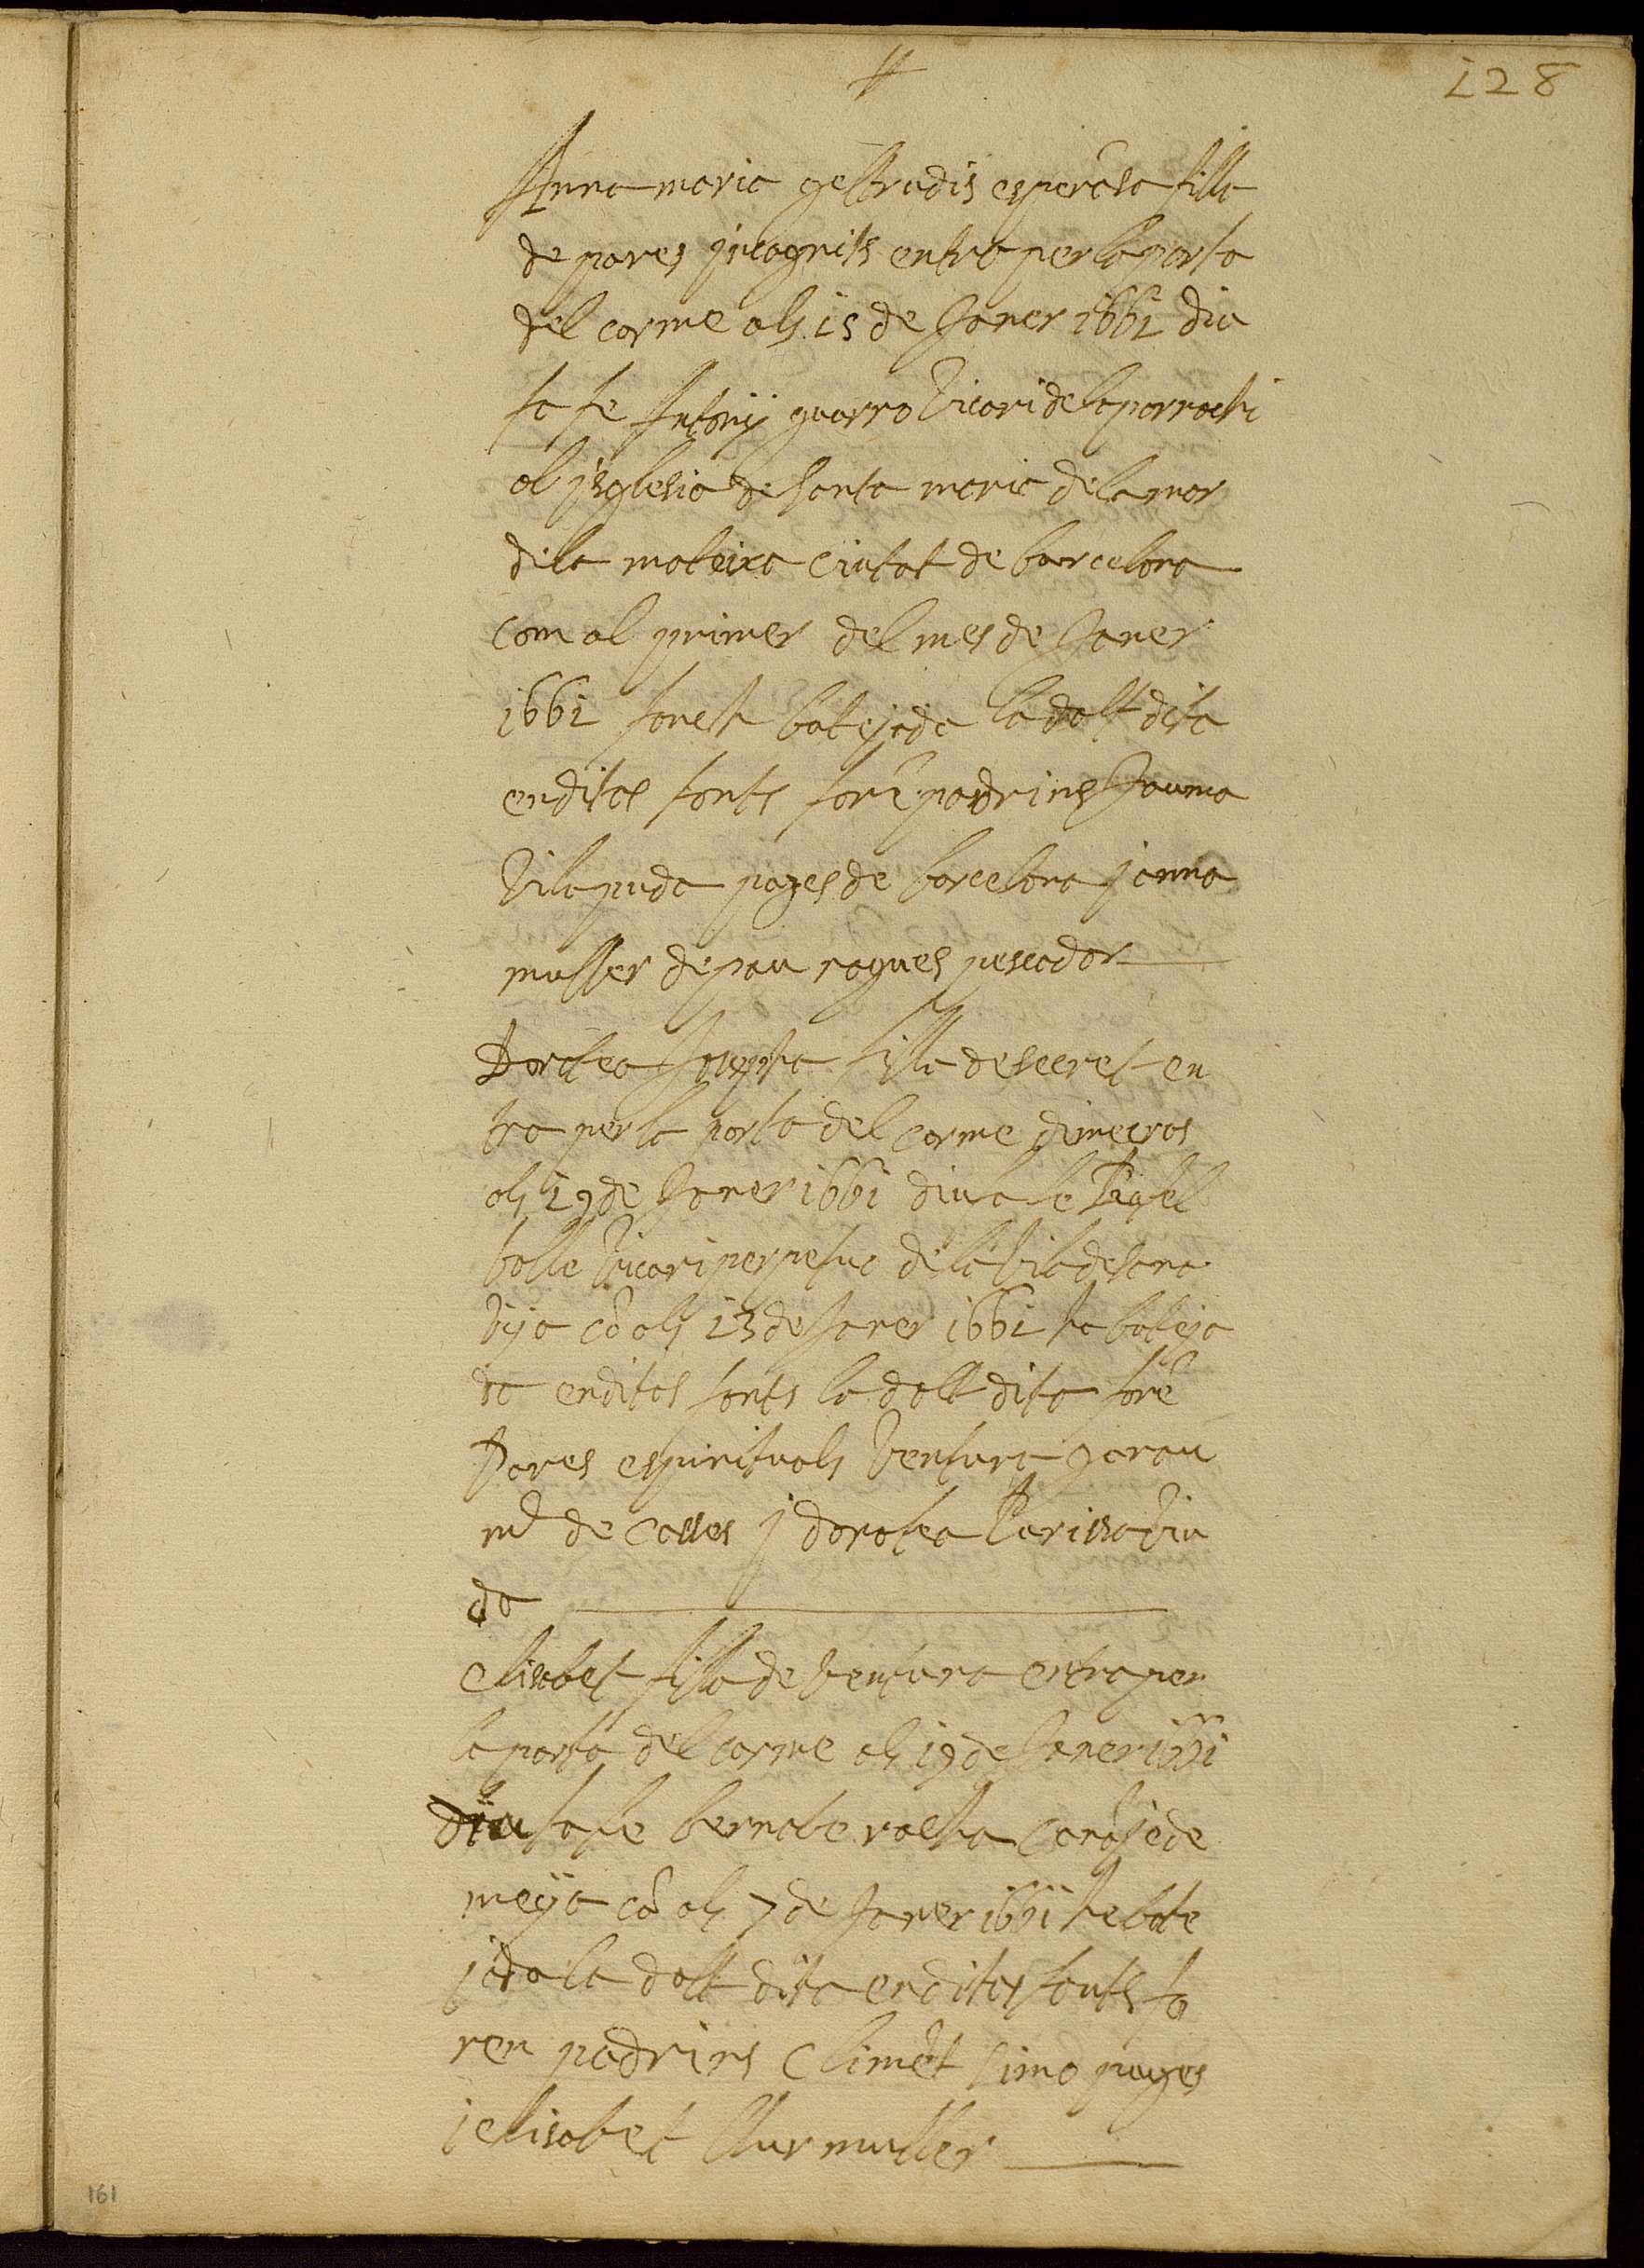 128
Anna maria geltrudis esperãsa filla
de pares jncognits entra per la porta
del carme als 15 de Janer 1661 diu
fa fe Antonij guarro Vicari de la parrochi
al jsglesia de santa maria de la mar
dela mateixa Ciutat de barcelona
Com al primer del mes de Janer
1661 fonch batejada la dalt dita
en ditas fonts forẽ padrins Jauma
Vilapuda pages de barcelona j anna
muller de pau ragues pescador
Dorotea Josepha filla de secret en
tra per la porta del carme dimecras
als 19 de Janer 1661 diu fa fe
balle Vicari perpetuo de la Vila de sana
Vija cõ als 13 de Janer 1661 ha bateja
da en ditas fonts la dalt dita forẽ
Pares espirituals Ventura garau
de casses j dorotea Parissa Viu
da
Elisabet filla de Ventura entra per
la porta del carme als 19 de Janer 1661
diu fa fe bernabe rocha
meya cõ als 7 de Janer 1661 he bate
jada la dalt dita en ditas fonts fo
ren padrins Climẽt simo pages
j elisabet Llur muller
161